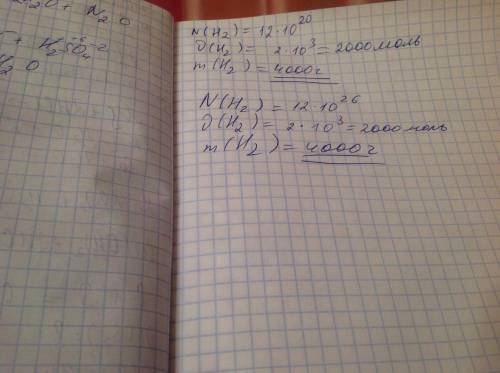 N₂O
+ H₂SO₄
H₂O
N(H₂) = 12·10²⁰
ν(H₂) = 2·10³ = 2000 моль
m(H₂) = 4000г
N(H₂) = 12·10²⁶
ν(H₂) = 2·10³ = 2000 моль
m(H₂) = 4000г